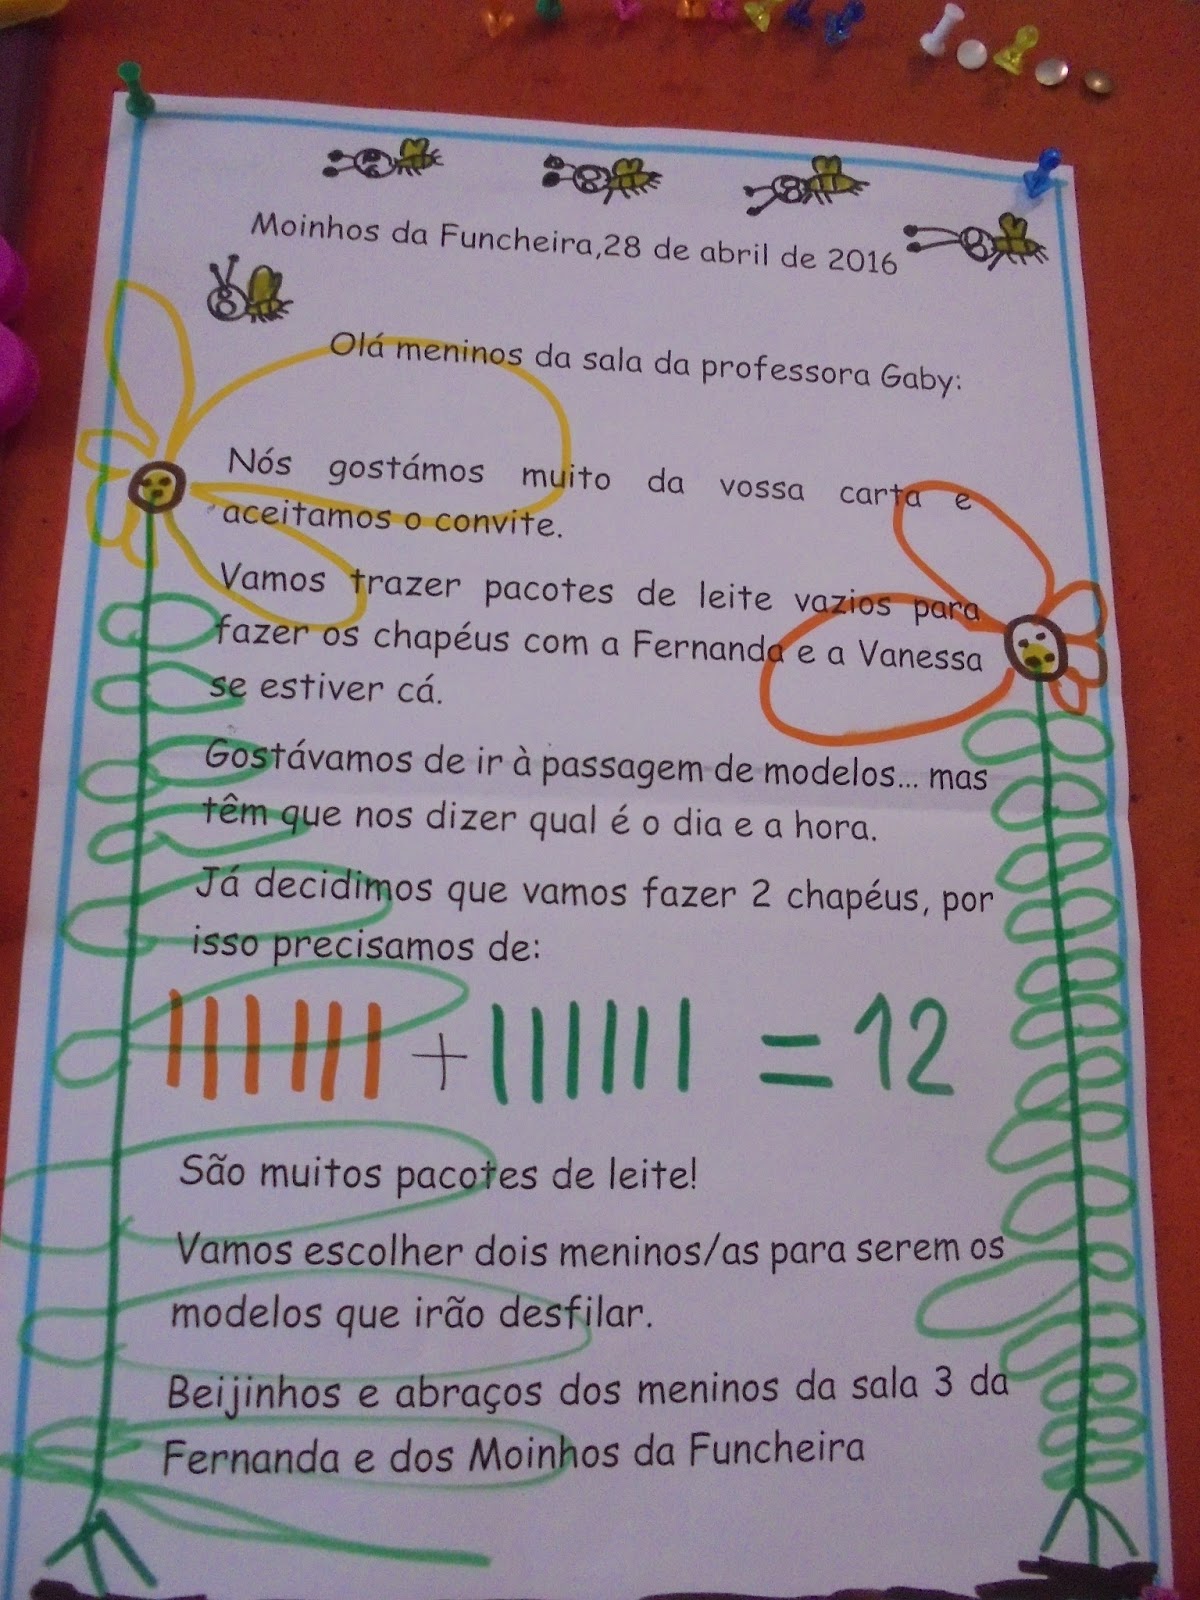 Moinhos da Funcheira,28 de abril de 2016
Olá meninos da sala da professora Gaby:
Nós gostámos muito da vossa carta e
aceitamos o convite.
Vamos trazer pacotes de leite vazios para
fazer os chapéus com a Fernanda e a Vanessa
se estiver cá.
Gostávamos de ir à passagem de modelos... mas
têm que nos dizer qual é o dia e a hora.
Já decidimos que vamos fazer 2 chapéus, por
isso precisamos de:
|||||| + |||||| = 12
São muitos pacotes de leite!
Vamos escolher dois meninos/as para serem os
modelos que irão desfilar.
Beijinhos e abraços dos meninos da sala 3 da
Fernanda e dos Moinhos da Funcheira